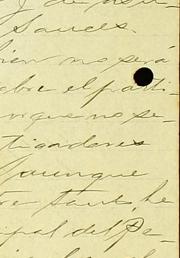 y de
Sauces.
bien no será
sobre el parti-
orque no se-
tigadores
Aunque
tre tanto, he
ipal del Pe-